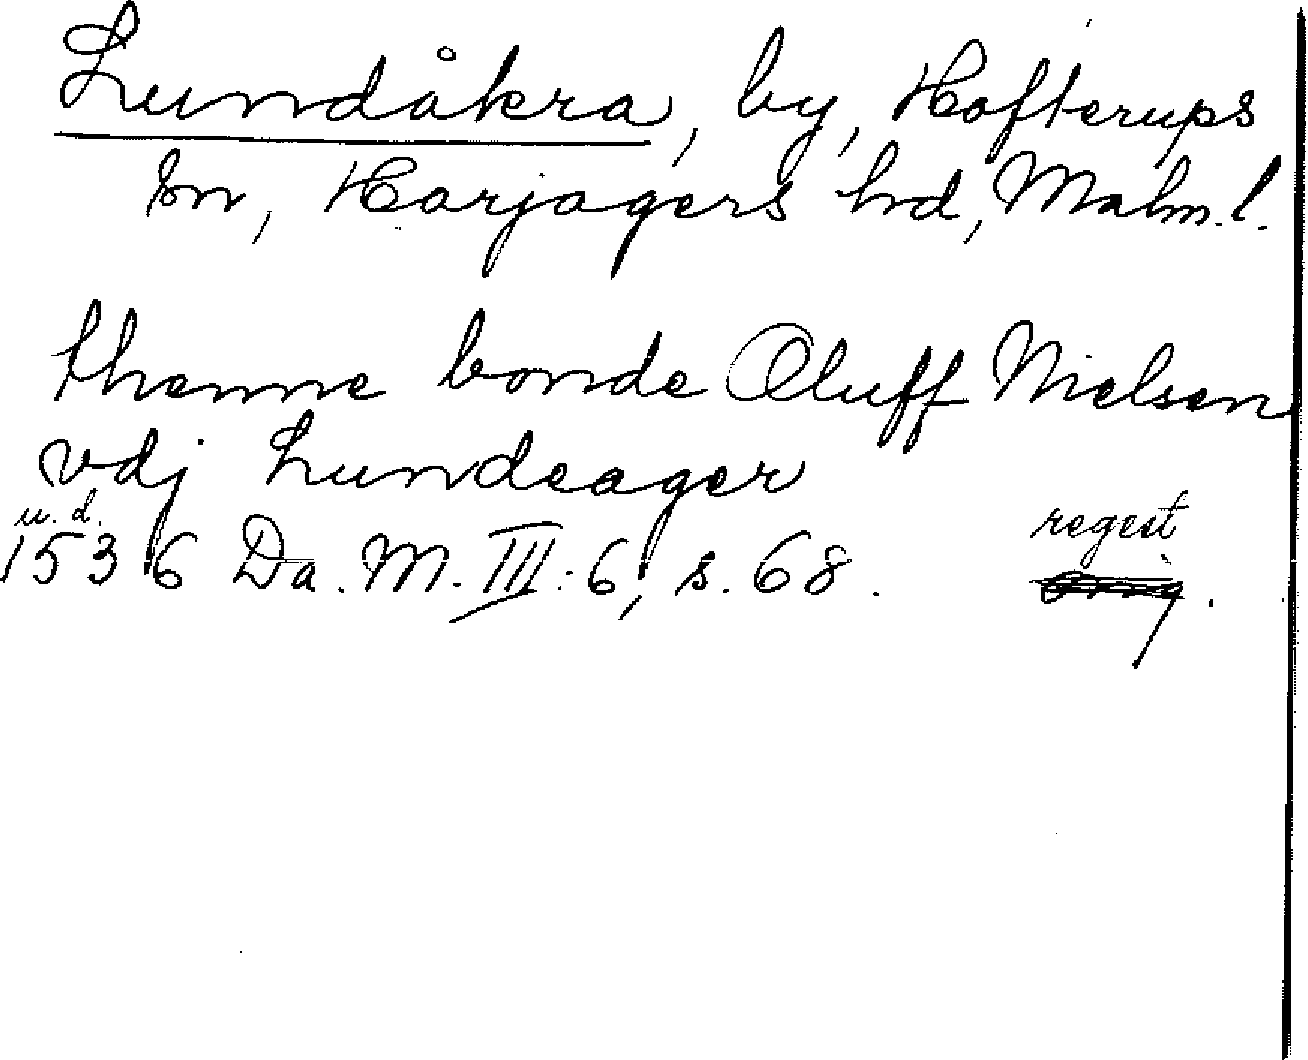 Lundåkra, by, Hofterups
sn, Harjagers hd, Malm. l.
thenne bonde Oluff Nielsen
vdj Lundeager
u. d.
1536 Da. M. III: 6, s. 68. regest
orig.